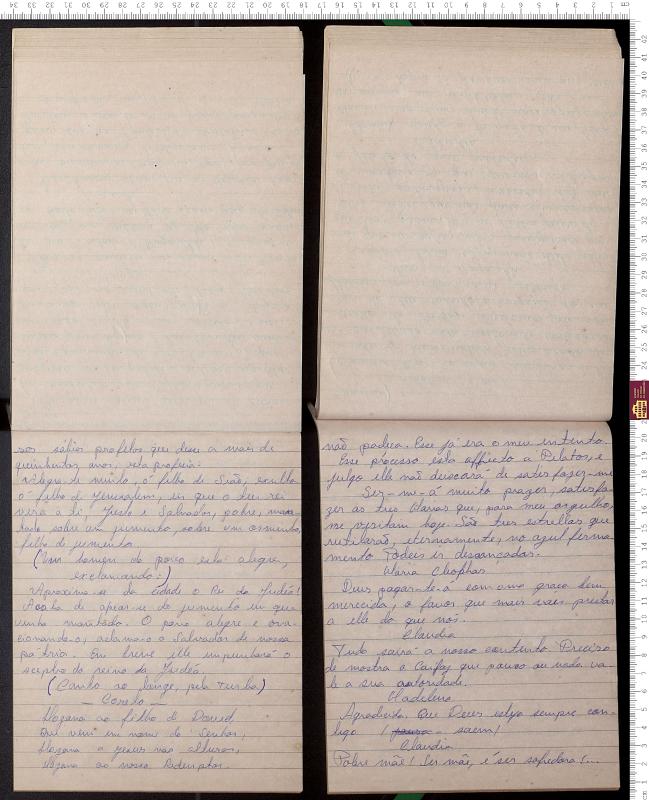 sos sábios profetas que desse a mais de
quinhentos anos, esta profecia:
Alegra-te muito, ó filho de Sião, exulta
ó filho de Jerusalém, eis que o teu rei
virá a ti, Justo e Salvador, pobre, mon-
tado sobre um jumento, sobre um
filho de jumenta.
(Um homem do povo está alegre,
exclamando:)
Aproxima-se da cidade o Rei da Judéa!
Acaba de apear-se do jumento em que
vinha montado. O povo alegre e ova-
cionando-o, aclama-o Salvador de nossa
pátria. Em breve elle empunhará o
sceptro do reino da Judéa.
(Canto ao longe, pela turba)
— Corêto —
Hozana ao filho de David,
Que vem em nome do Senhor,
Hozana a Jesus nas alturas,
Hozana ao nosso Redemptor.
não padeça. Esse já era o meu intento.
Esse processo está affecto a Pilatos, e
julgo elle não deixará de satisfazer-me
Ser-me-á muito prazer, satisfa-
zer as tres que, para meu orgulho,
me visitam hoje. São tres estrellas que
rutilarão, eternamente, no azul firma-
mento. Podeis ir descançadas.
Maria Cleophas
Deus pagar-te-á com uma graça bem
merecida, o favor que mais vais prestar
a elle do que nós.
Claudia
Tudo sairá a nosso contento. Preciso
de mostra a Caifaz que pouco ou nada va-
le a sua autoridade.
Madelena
Agradecida. Que Deus esteja sempre con-
tigo (saem)
Claudia
Pobre mãe! Ser mãe, é ser sofredora!...